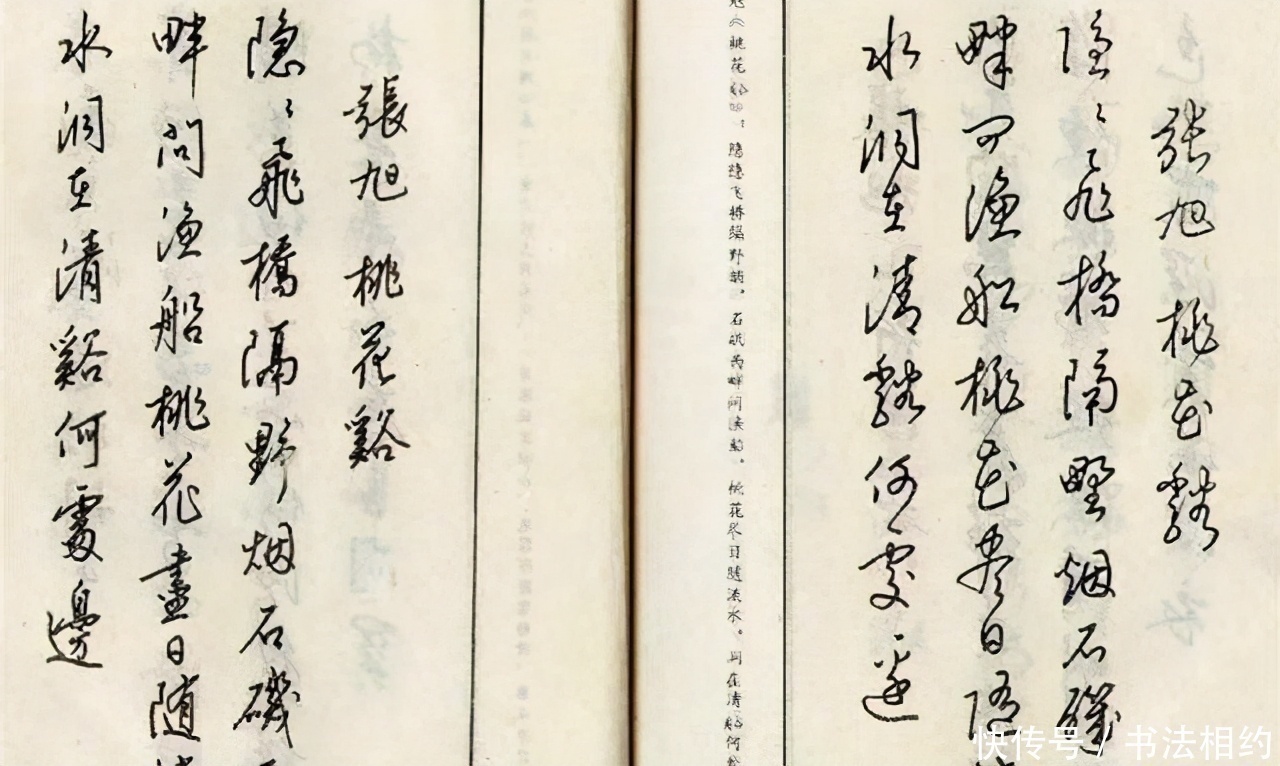 張旭桃花谿
隐〻飞橋隔野烟石磯
畔问渔船桃花尽日随
水洞在清谿何处边
桃花 隐隐飞桥隔野烟。石矶西畔问渔船。桃花尽日随流水。洞在清谿何
張旭桃花谿
隐〻飛橋隔野烟石磯
畔問渔船桃花盡日随
水洞在清谿何處邊
快传号 / 书法相约